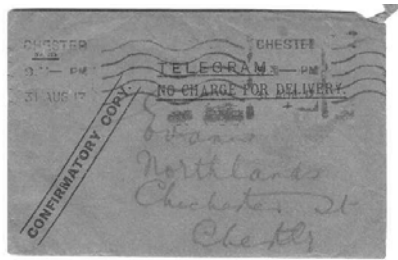 CHESTER CHESTE
PM TELEGRAM PM
31 AUG 17 NO CHARGE FOR DELIVERY.
CONFIRMATORY COPY.
Evans
Northlands
Chichester St
Chester